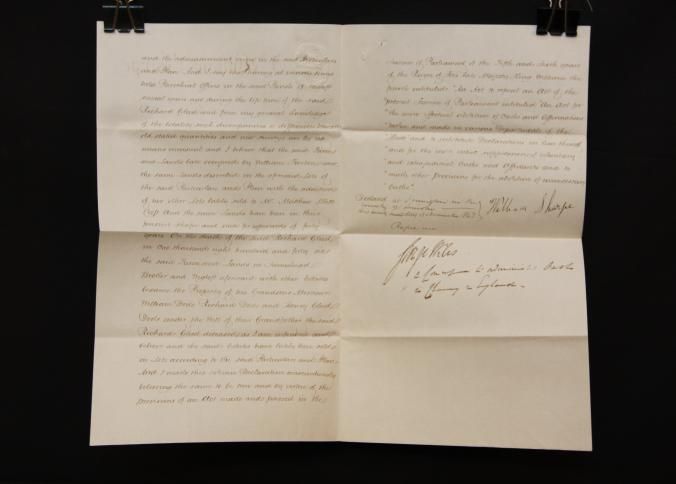 and the admeasurement given in the said Particulars
and Plan And I say that having at various times
held Parochial Offices in the said Parish of
several years ago during the life time of the said
Richard Cled and from my general knowledge
of the localities such discrepancies or differences between
old stated quantities and new surveys are by no
means unusual and I believe that the said Farm
and Lands late occupied by William are
the same Lands described in the aforesaid Lots of
the said Particulars and Plan with the additions
of two other Lots lately sold to Mr. Matthew
and the same Lands have been in their
present shape and state for upwards of forty
years On the death of the said Richard Cled
in One thousand eight hundred and forty six
the said Farm and Lands in
and Wigtoft aforesaid with other Estates
became the Property of his Grandsons Messieurs
William Dods Richard Dods and Henry Cled
Dods under the Will of their Grandfather the said
Richard Cled deceased as I am informed and
believe and the said Estates have lately been sold
in Lots according to the said Particulars and Plan
And I make this solemn Declaration conscientiously
believing the same to be true and by virtue of the
provisions of an Act made and passed in the
Session of Parliament of the Fifth and Sixth years
of the Reign of His late Majesty King William the
Fourth intituled "An Act to repeal an Act of the
"present Session of Parliament intituled "An Act for
"the more effectual abolition of Oaths and Affirmations
"taken and made in various Departments of the
"State and to substitute Declarations in lieu thereof
"and for the more entire suppression of voluntary
"and extrajudicial Oaths and Affidavits and to
"make other provisions for the abolition of unnecessary
"Oaths".
Declared at in the
County of Lincoln
this day of
William Sharpe
Before me
A Commissioner to administer Oaths
in Chancery in England